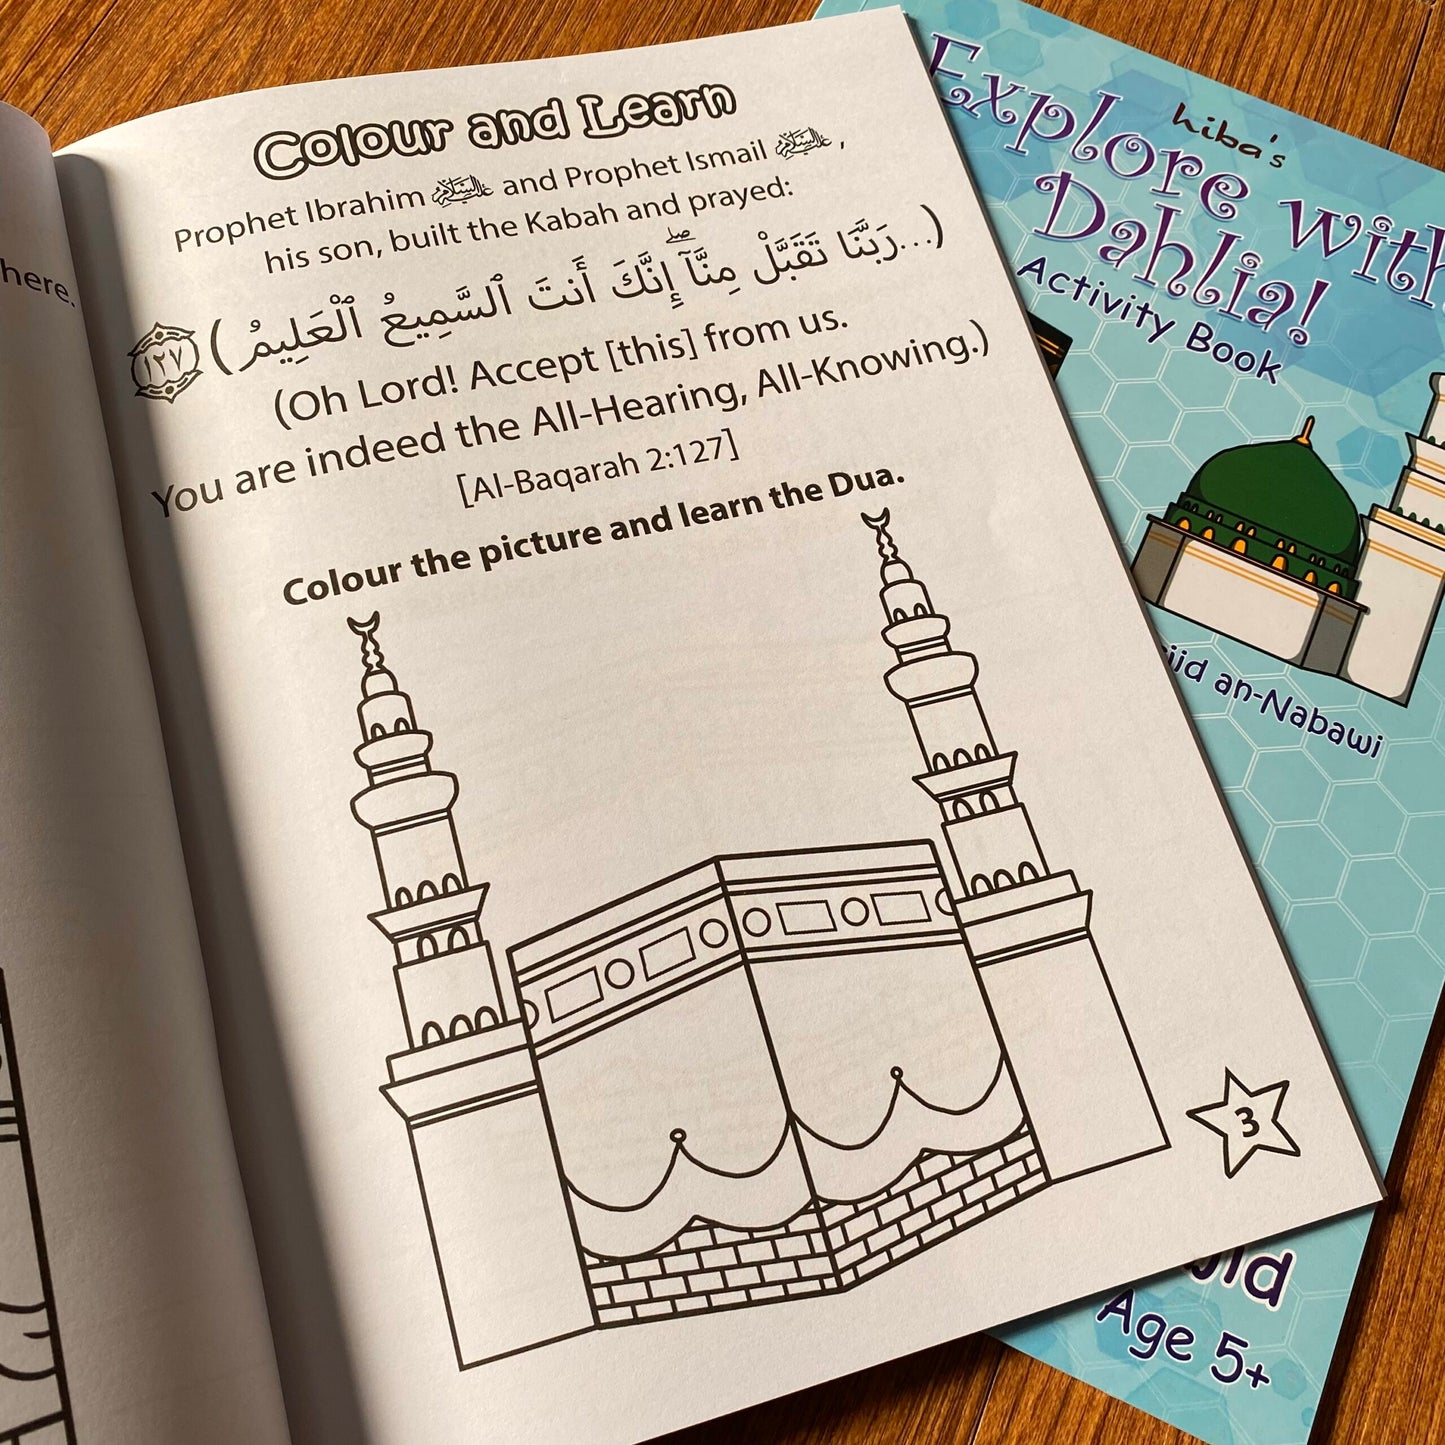 here.
Colour and Learn
Prophet Ibrahim عليه السلام and Prophet Ismail عليه السلام ,
his son, built the Kabah and prayed:
(...رَبَّنَا تَقَبَّلْ مِنَّآ ۖ إِنَّكَ أَنتَ ٱلسَّمِيعُ ٱلْعَلِيمُ) ١٢٧
(Oh Lord! Accept [this] from us.
You are indeed the All-Hearing, All-Knowing.)
[Al-Baqarah 2:127]
Colour the picture and learn the Dua.
3
hiba's
Explore with
Dahlia!
Activity Book
an-Nabawi
Age 5+